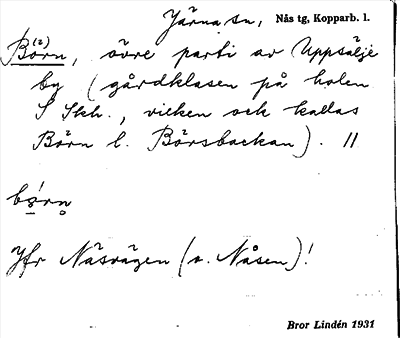 Järna sn, Nås tg, Kopparb. l.
Börn(2), övre parti av Uppsälje
by (gårdklasen på holen
S Skh., vilken och kallas
Börn l. Börsbackan). 11
Jfr Näsvägen (s. Nåsen)!
Bror Lindén 1931